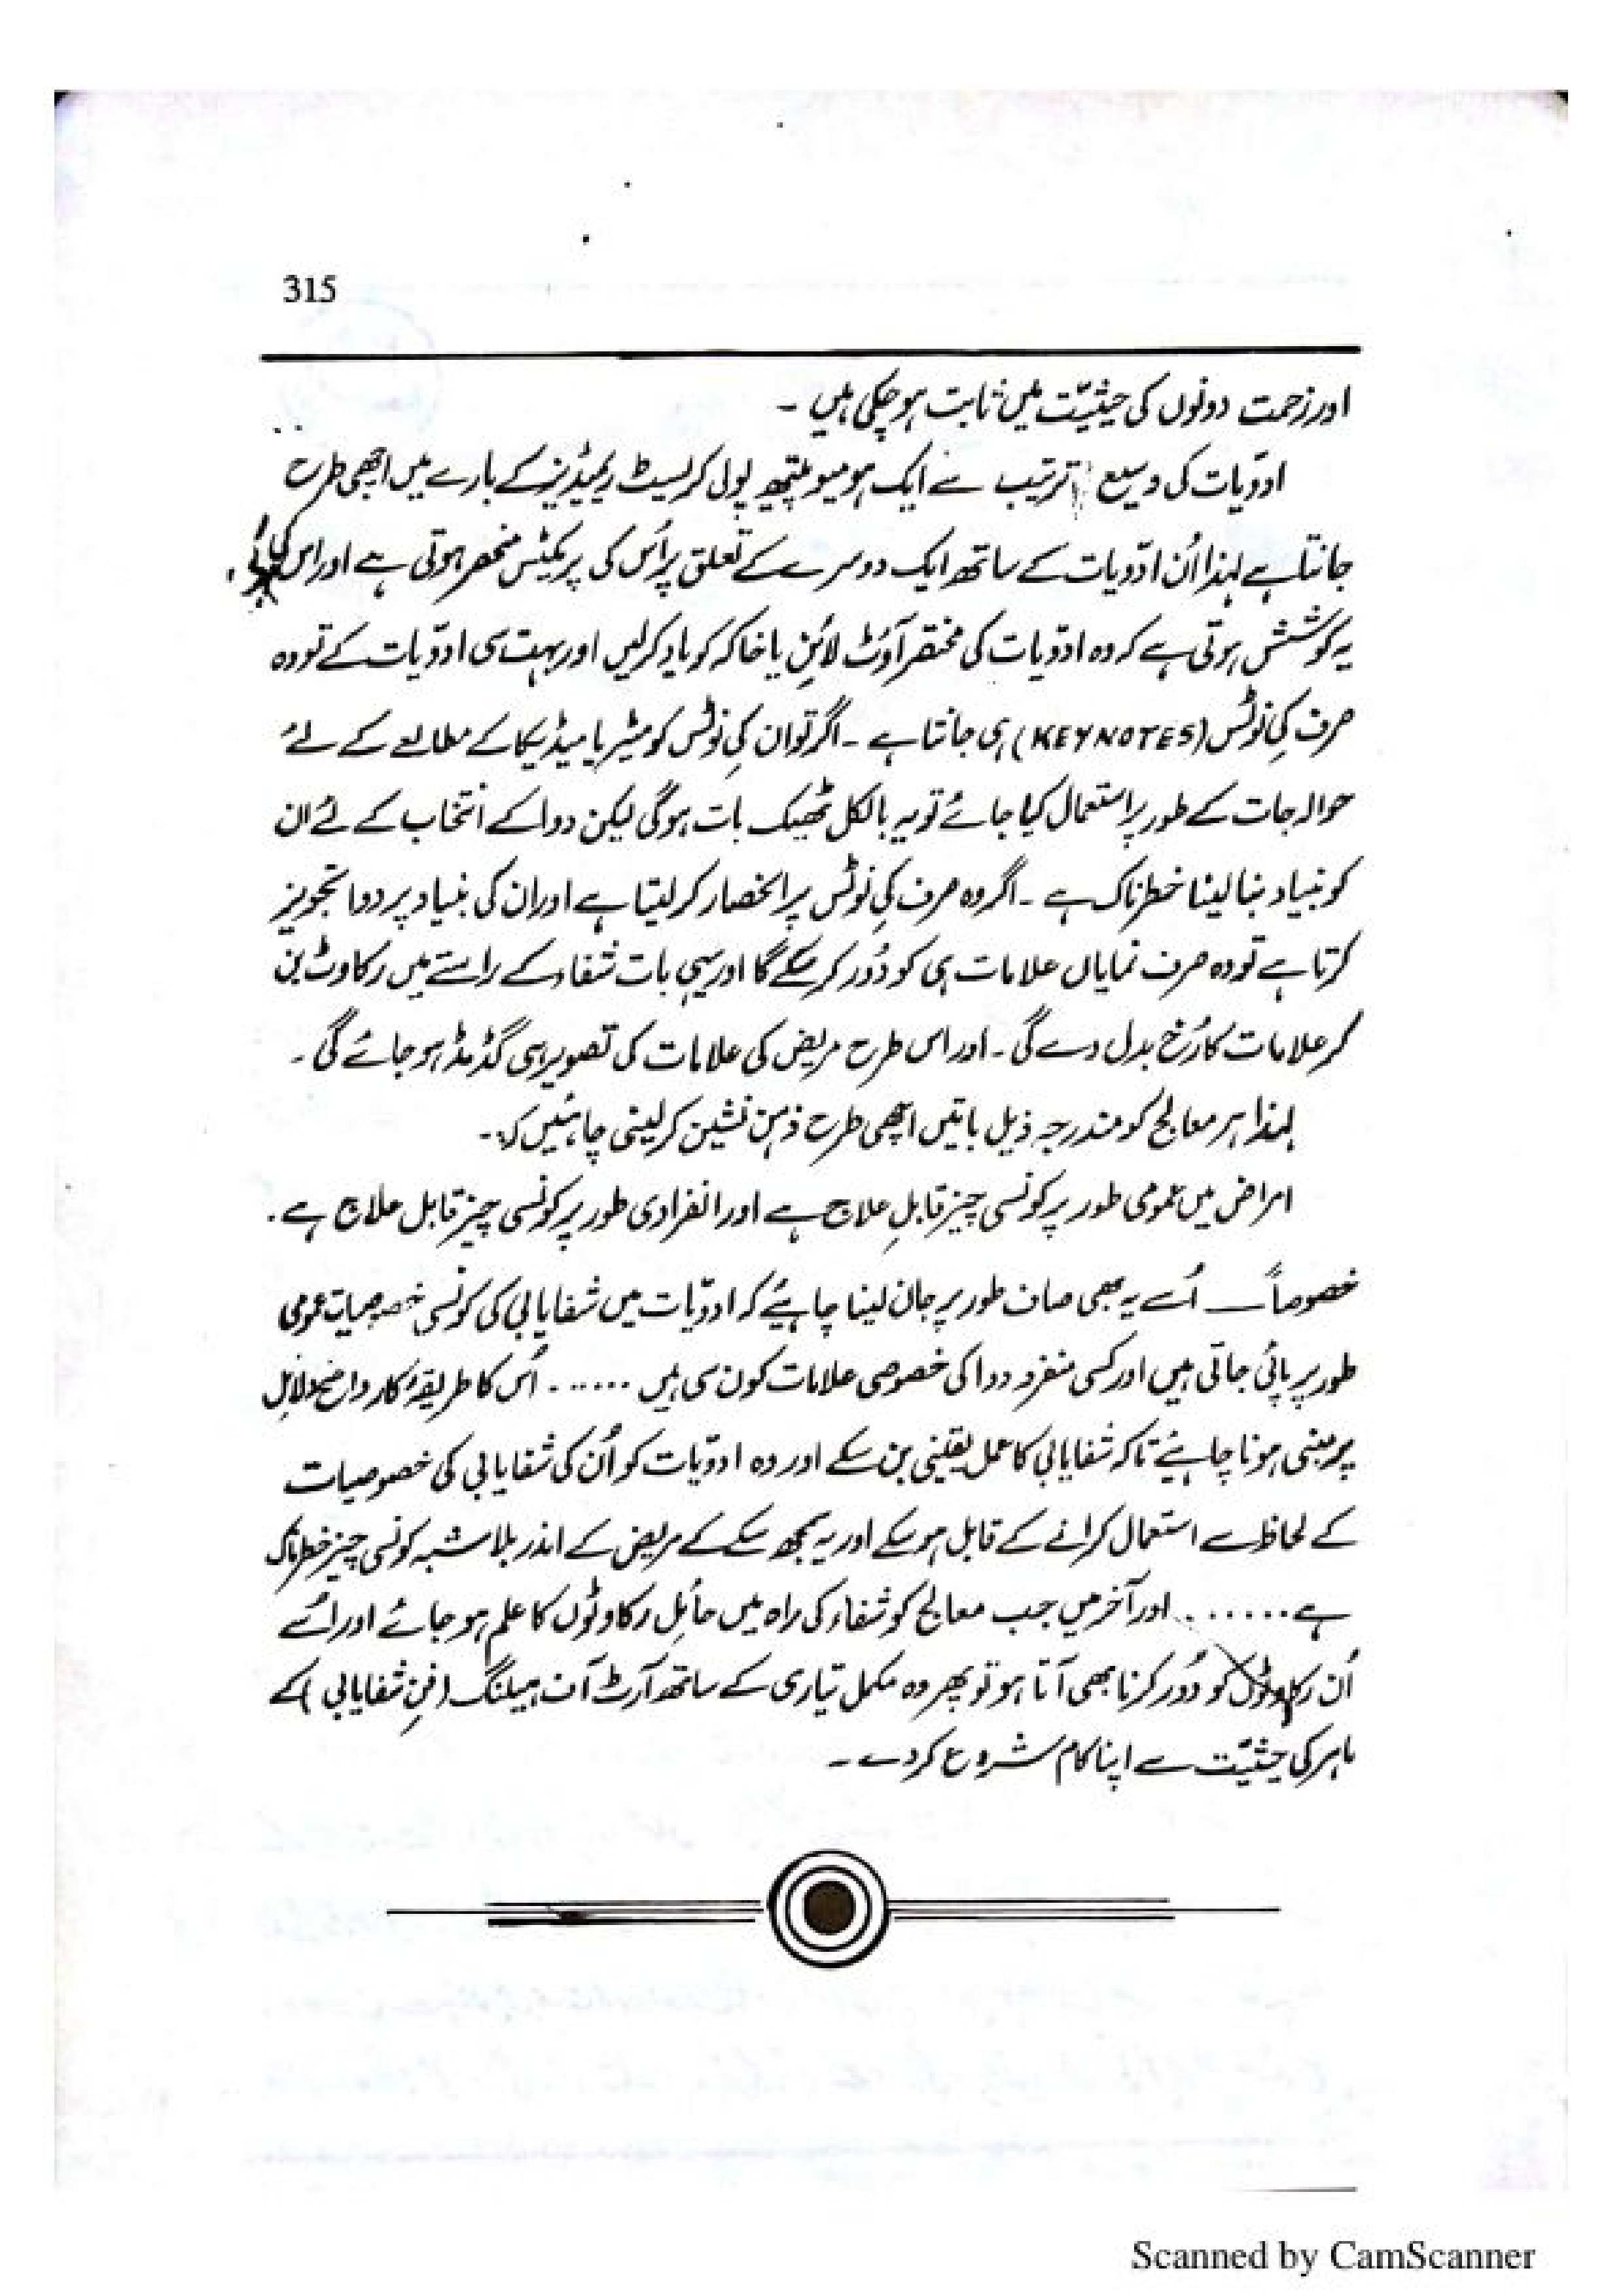 315
اور زحمت دونوں کی حیثیّت میں ثابت ہو چکی ہیں ۔
ادوّیات کی وسیع ترتیب سے ایک ہومیوپیتھ پولی کرلیسٹ ریمیڈیز کے بارے میں اچھی طرح
جانتا ہے لہٰذا اُن ادوّیات کے ساتھ ایک دوسرے کے تعلق پر اُس کی پریکٹس منحصر ہوتی ہے اور اس کی
یہ کوشش ہوتی ہے کہ وہ ادوّیات کی مختصر آوٹ لائن یا خاکہ کو یاد کر لیں اور بہت سی ادوّیات کے تو وہ
صرف کی نوٹس (KEYNOTES) ہی جانتا ہے ۔ اگر تو ان کی نوٹس کو میٹریا میڈیکا کے مطالعے کے لئے
حوالہ جات کے طور پر استعمال کیا جائے تو یہ بالکل ٹھیک بات ہوگی لیکن دوا کے انتخاب کے لئے ان
کو بنیاد بنا لینا خطرناک ہے ۔ اگر وہ صرف کی نوٹس پر انحصار کر لیتا ہے اور ان کی بنیاد پر دوا تجویز
کرتا ہے تو وہ صرف نمایاں علامات ہی کو دُور کر سکے گا اور یہی بات شفاء کے راستے میں رکاوٹ بن
کر علامات کا رُخ بدل دے گی ۔ اور اس طرح مریض کی علامات کی تصویر ہی گڈ مڈ ہو جائے گی ۔
لہٰذا ہر معالج کو مندرجہ ذیل باتیں اچھی طرح ذہن نشین کر لینی چاہئیں کہ:-
امراض میں عمومی طور پر کونسی چیز قابلِ علاج ہے اور انفرادی طور پر کونسی چیز قابل علاج ہے ۔
خصوصاً ــــ اُسے یہ بھی صاف طور پر جان لینا چاہیئے کہ ادوّیات میں شفایابی کی کونسی خصوصیات عمومی
طور پر پائی جاتی ہیں اور کسی منفرد دوا کی خصوصی علامات کون سی ہیں ...... ۔ اُس کا طریقۂ کار واضح دلائل
پر مبنی ہونا چاہیئے تاکہ شفایابی کا عمل یقینی بن سکے اور وہ ادوّیات کو اُن کی شفایابی کی خصوصیات
کے لحاظ سے استعمال کرانے کے قابل ہو سکے اور یہ سمجھ سکے کے مریض کے اندر بلا شبہ کونسی چیز خطرناک
ہے ....... اور آخر میں جب معالج کو شفاء کی راہ میں حائل رکاوٹوں کا علم ہو جائے اور اُسے
اُن رکاوٹوں کو دُور کرنا بھی آتا ہو تو پھر وہ مکمل تیاری کے ساتھ آرٹ آف ہیلنگ (فنِ شفایابی) کے
ماہر کی حیثیّت سے اپنا کام شروع کر دے ۔
Scanned by CamScanner